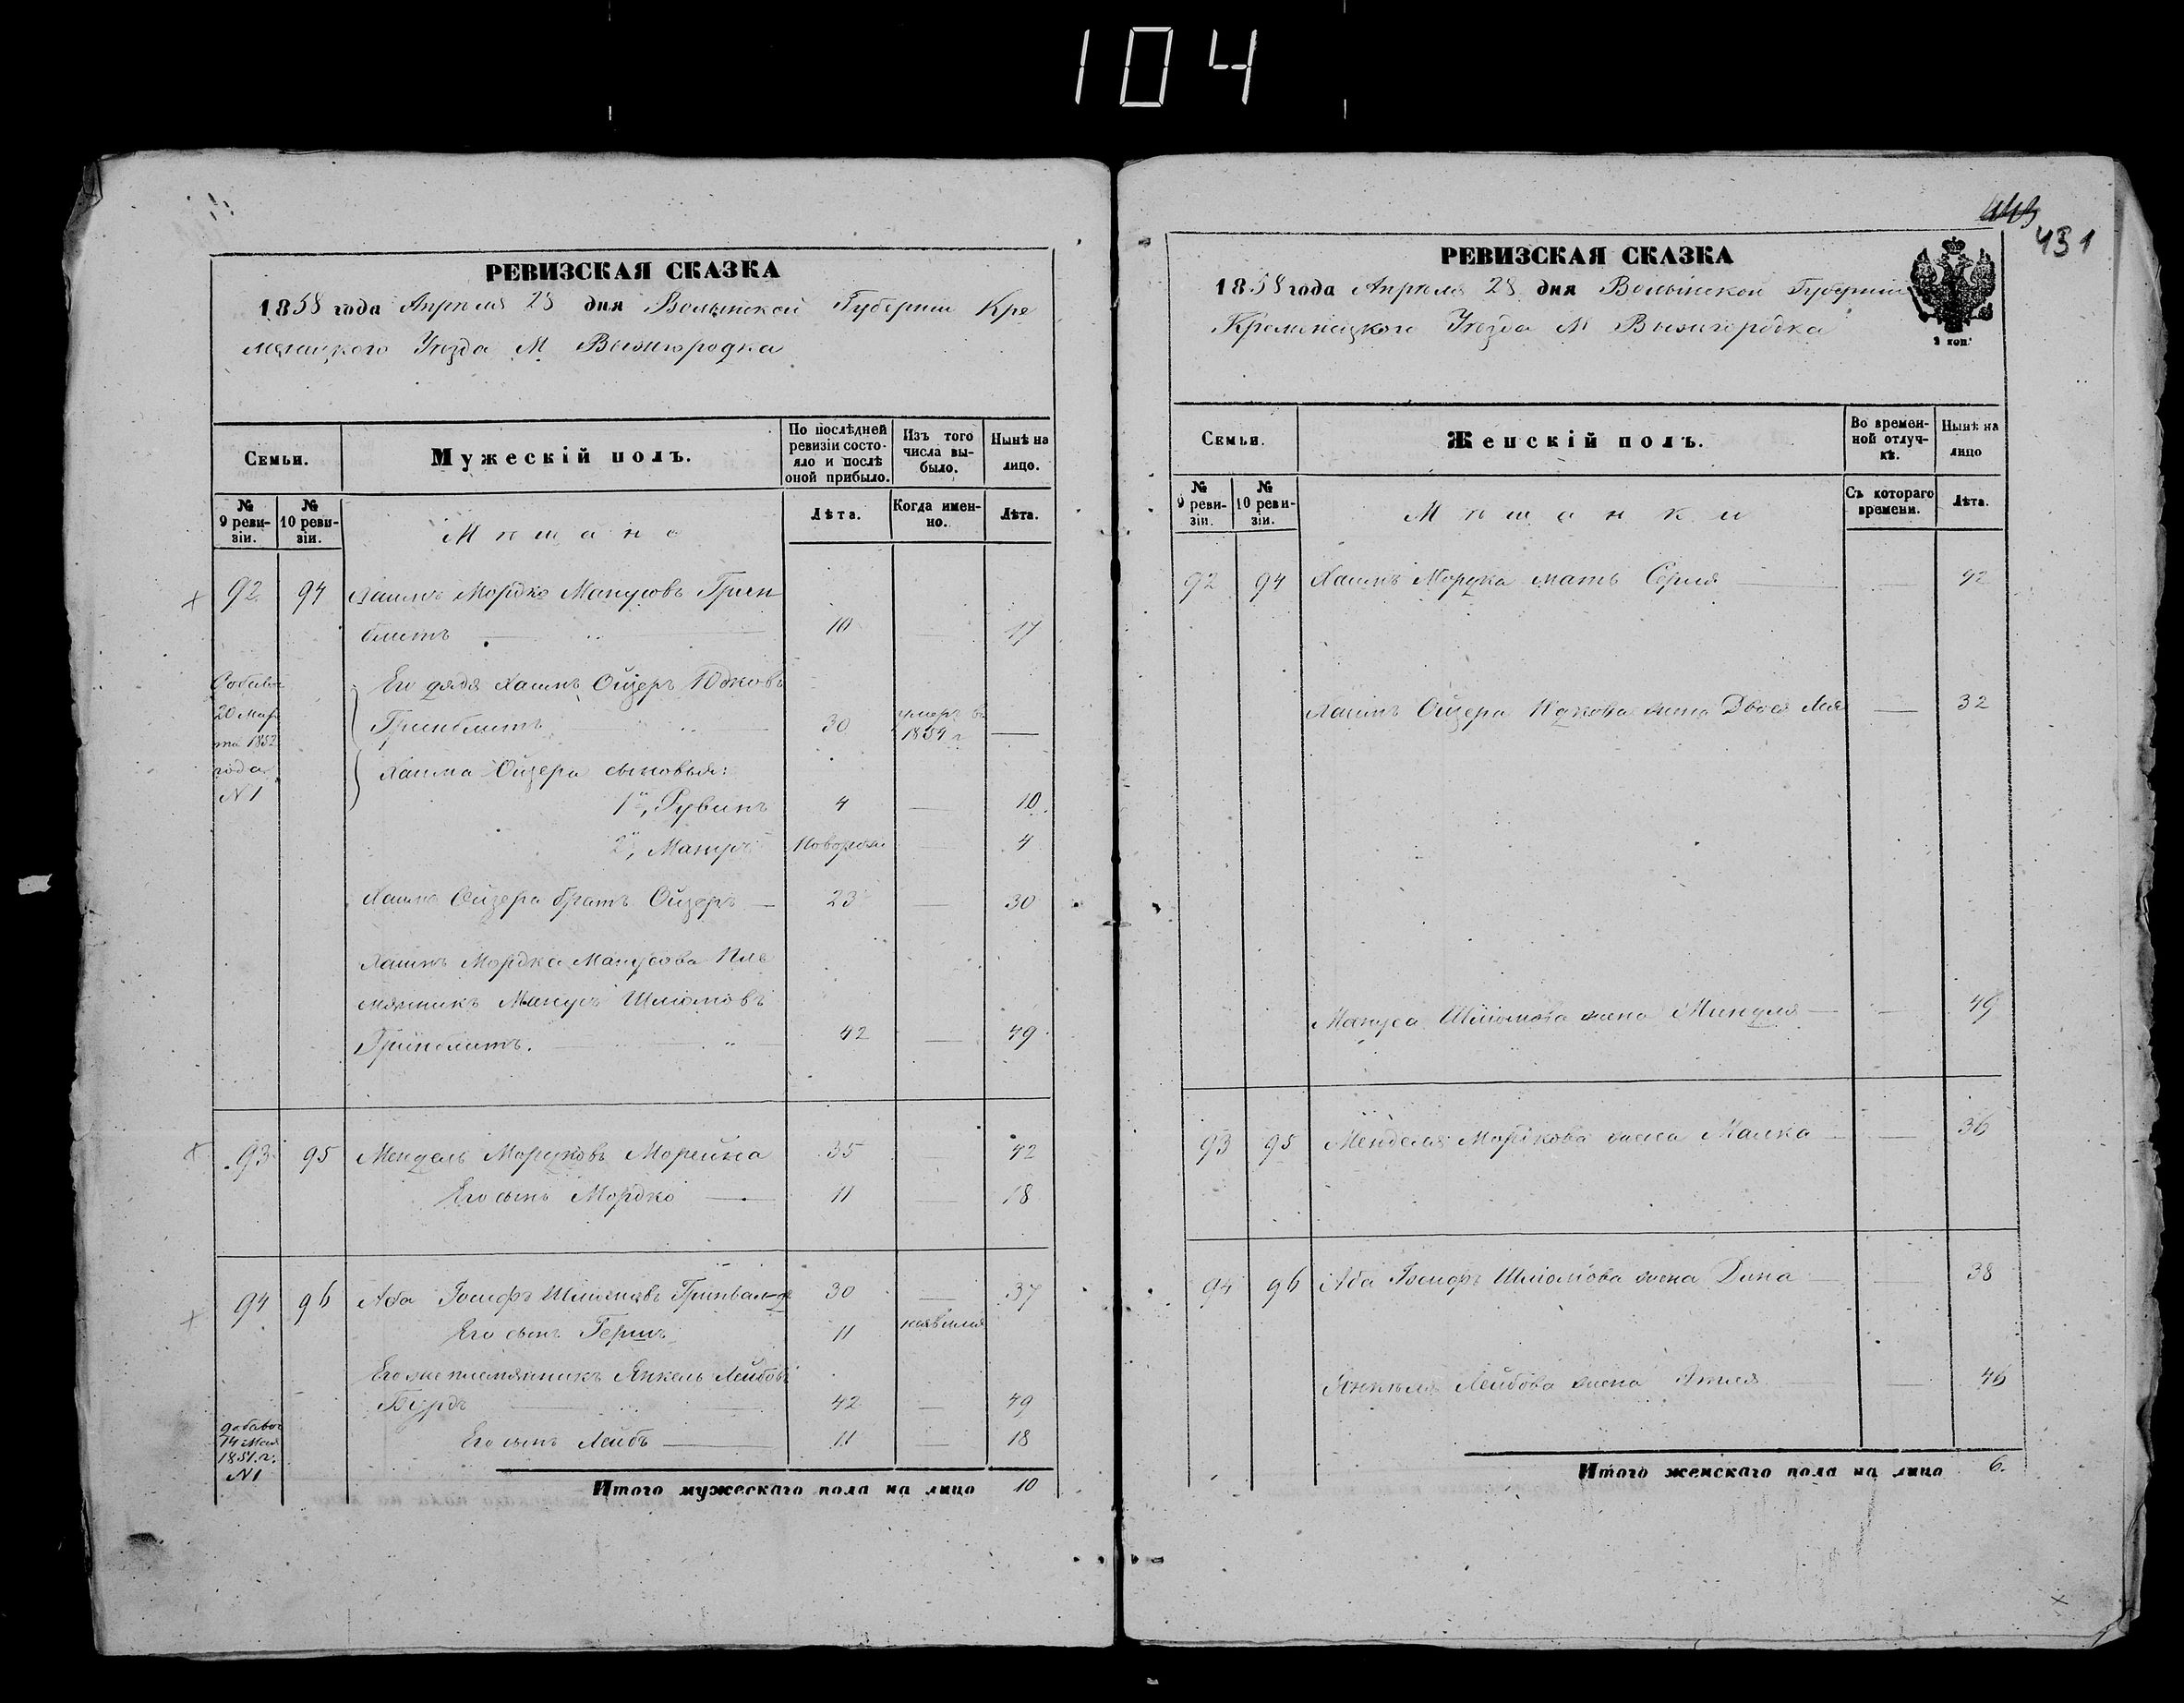 104
РЕВИЗСКАЯ СКАЗКА
1858 года Апреля 28 дня Волынской Губернии Кре
менецкого Уезда М Вышгородка
Семьи.
Мужескій полъ.
По послѣдней ревизіи состо-
яло и послѣ
оной прибыло.
Изъ того
числа вы-
было.
Нынѣ на
лицо.
№
9 реви-
зіи.
№
10 реви-
зіи.
Мѣщане
Лѣта.
Когда имен-
но.
Лѣта.
92 94 Хаимъ Мордко Манусовъ Грин
блитъ 10 — 17
Его дядя Хаимъ Ойзеръ Юдковъ
Гринблитъ 30 умеръ въ 1854 г —
добавоч
20 Мар
та 1852
года
№ 1
Хаима Ойзера сыновья:
1й, Рувинъ 4 — 10
2й, Манусъ Новорожд — 4
Хаима Ойзера братъ Ойзеръ — 23 — 30
Хаимъ Мордка Манусова Пле
мянникъ Манусъ Шлiомовъ
Гринблитъ. 42 — 49
93 95 Мендель Мордковъ 35 — 42
Его сынъ Мордко — 11 — 18
94 96 Аба Іосифъ Шліомовъ Гринвальд 30 — 37
Его сынъ Гершъ 11 неявился
Его же племянникъ Янкель Лейбовъ
42 — 49
добавоч
14 Мая
1851.г.
№1
Его сынъ Лейбъ — 11 18
Итого мужескаго пола на лицо 10
443
431
РЕВИЗСКАЯ СКАЗКА
1858 года Апреля 28 дня Волынской Губернии
Кременецкого Уезда М Вышгородка
2 коп.
Семьи.
Женскій полъ.
Во времен-
ной отлуч-
кѣ.
Нынѣ на
лицо
№
9 реви-
зіи.
№
10 реви-
зіи.
Мѣщанки
Съ котораго
времени.
Лѣта.
92 94 Хаимъ Мордка мать Серля — 42
Хаимъ Ойзера Юдкова жена Двося Лея — 32
Мануса Шліомова жена Миндля — 49
93 95 Менделя Мордкова жена Малка — 36
94 96 Аба Іосифъ Шліомова жена Дина 38
Янкеля Лейбова жена — 46
Итого женскаго пола на лицо 6.